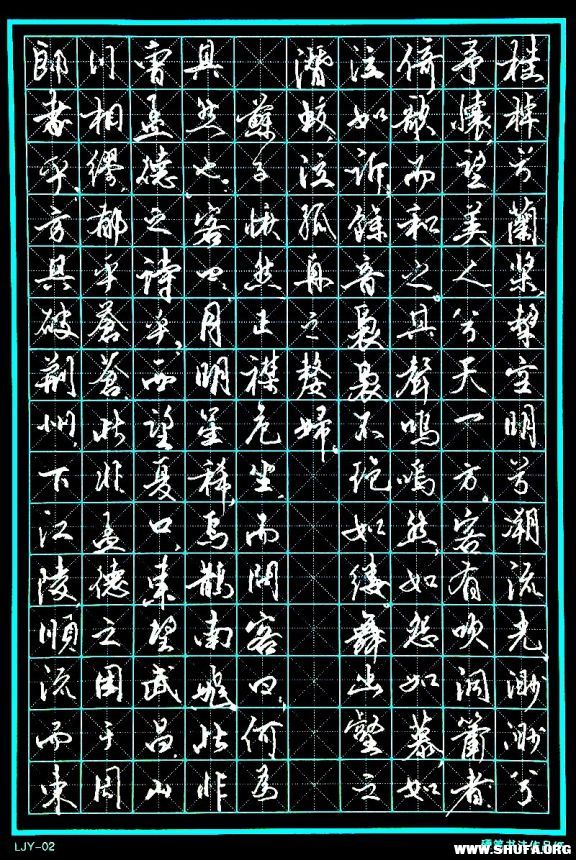 桂棹兮蘭槳,擊空明兮溯流光,渺渺兮
予懷,望美人兮天一方。客有吹洞簫者
倚歌而和之。其聲嗚嗚然,如怨如慕,如
泣如訴,餘音裊裊不絕如縷,舞幽壑之
潛蛟,泣孤舟之嫠婦。
蘇子愀然正襟危坐,而問客曰,何為
其然也,客曰,月明星稀,烏鵲南飛,此非
曹孟德之詩乎,西望夏口,東望武昌,山
川相繆,郁乎蒼蒼,此非孟德之困于周
郎者乎,方其破荊州,下江陵,順流而東
LJY-02
WWW.SHUFA.ORG